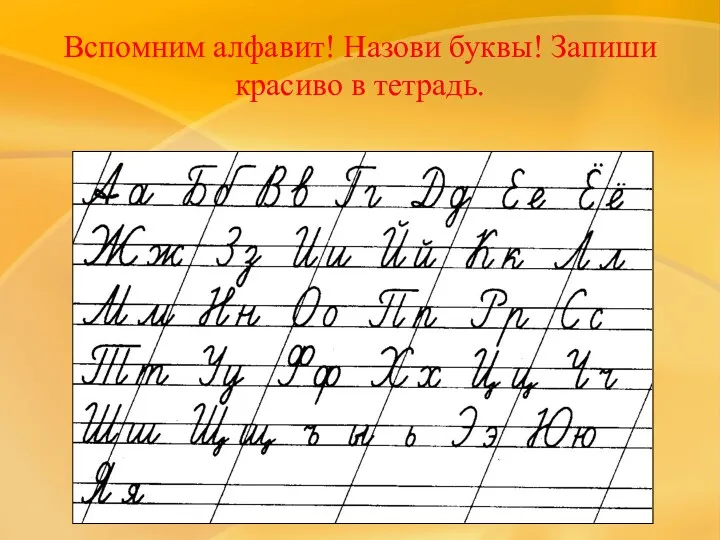 Вспомним алфавит! Назови буквы! Запиши
красиво в тетрадь.
Аа Бб Вв Гг Дд Ее Ёё
Жж Зз Ии Йй Кк Лл
Мм Нн Оо Пп Рр Сс
Тт Уу Фф Хх Цц Чч
Шш Щщ ъ ы ь Ээ Юю
Яя